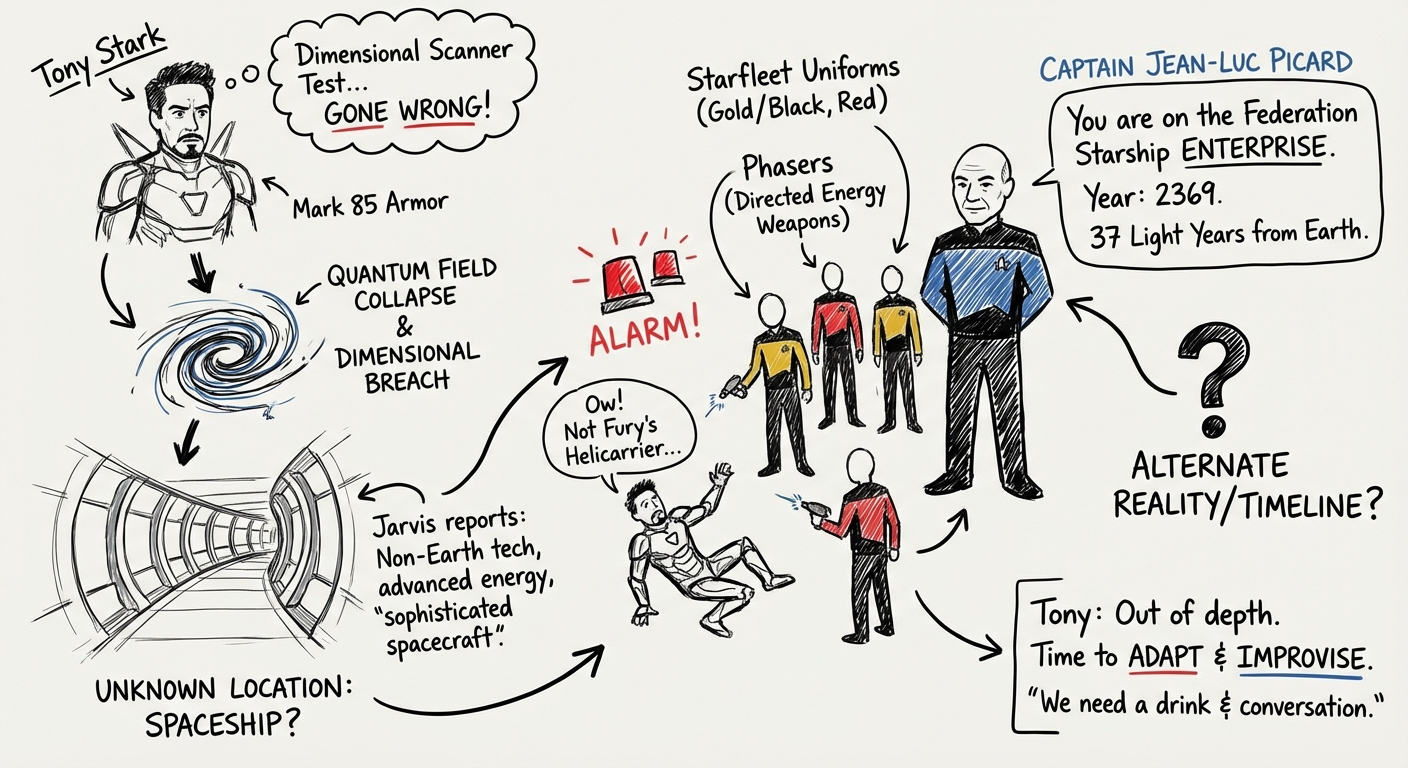 Tony Stark
Dimensional Scanner
Test...
GONE WRONG!
Mark 85 Armor
QUANTUM FIELD
COLLAPSE
&
DIMENSIONAL
BREACH
UNKNOWN LOCATION:
SPACESHIP?
Jarvis reports:
Non-Earth tech,
advanced energy,
"sophisticated
spacecraft".
ALARM!
Ow!
Not Fury's
Helicarrier...
Starfleet Uniforms
(Gold/Black, Red)
Phasers
(Directed Energy
Weapons)
CAPTAIN JEAN-LUC PICARD
You are on the Federation
Starship ENTERPRISE.
Year: 2369.
37 Light Years from Earth.
?
ALTERNATE
REALITY/TIMELINE?
Tony: Out of depth.
Time to ADAPT & IMPROVISE.
"We need a drink & conversation."